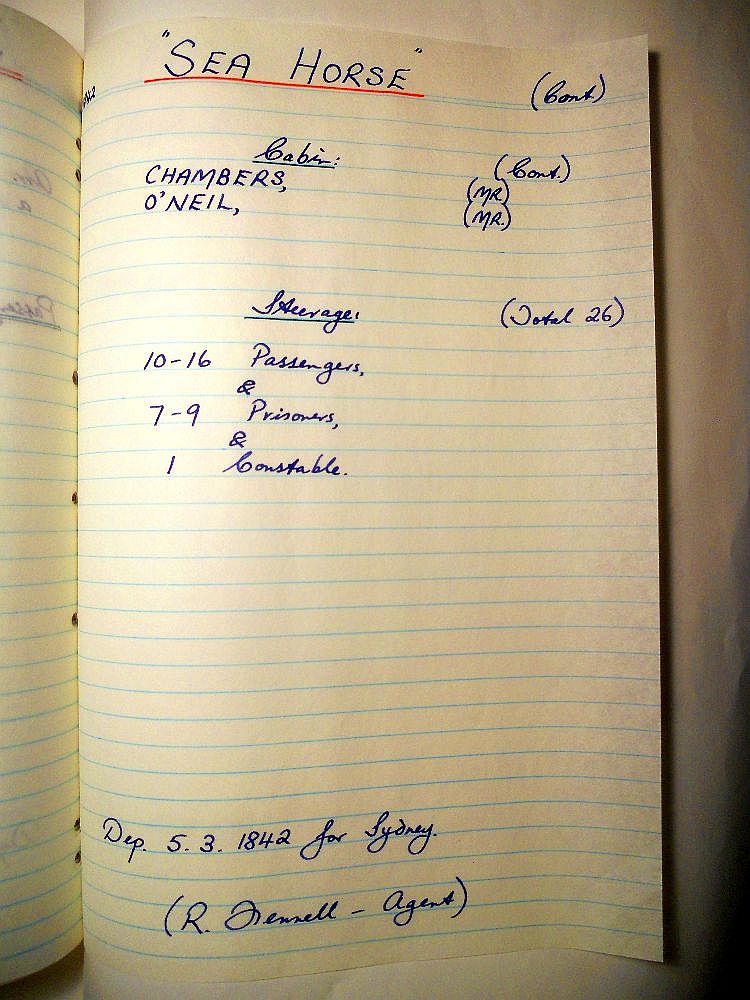 "SEA HORSE" (Cont)
Cabin: (Cont.)
CHAMBERS, (MR)
O'NEIL, (MR.)
Steerage: (Total 26)
10-16 Passengers,
&
7-9 Prisoners,
&
1 Constable.
Dep. 5. 3. 1842 for Sydney.
(R. Fennell - Agent)